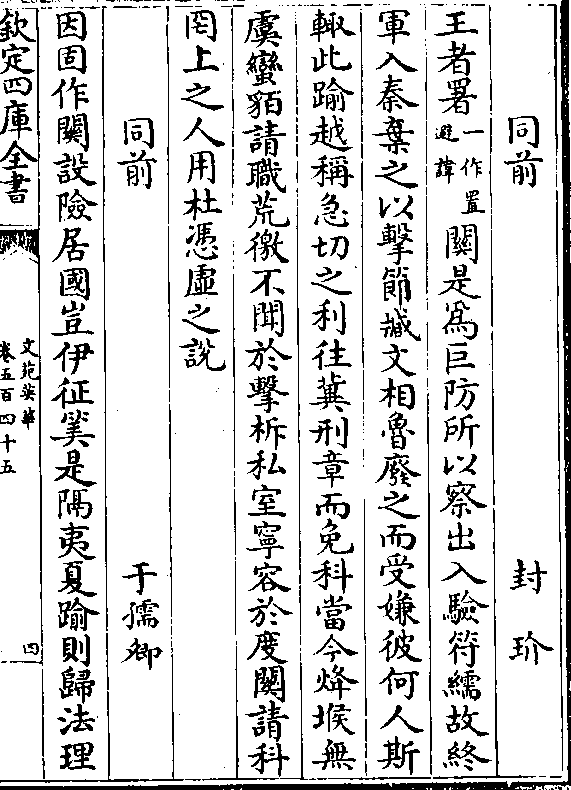 同前 封玠
王者署一作置避諱關是為巨防所以察出入驗符繻故終
軍入秦棄之以擊節臧文相魯廢之而受嫌彼何人斯
輙此踰越稱急切之利往冀刑章而免科當今烽堠無
虞蠻貊請職荒徼不聞於擊柝私室寧容於度關請科
罔上之人用杜憑虛之說
同前 于孺卿
因固作關設險居國豈伊征筭是隔夷夏踰則歸法理
欽定四庫全書
文苑英華
卷五百四十五
四